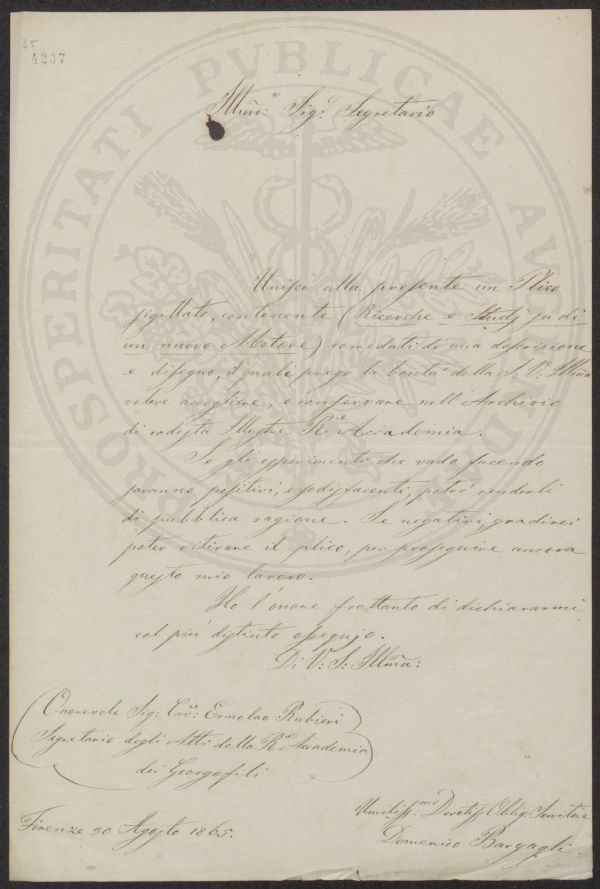 35
4207
Illmo: Sigr. Segretario
Unisco alla presente un Plico
sigillato, contenente (Ricerche e Studj su di
un nuovo Motore) corredati di una descrizione
e disegno, il quale prego la bontà della S. Va. Illma
volere accogliere, e conservare nell'Archivio
di codesta Illustre Re Accademia.
Se gli esperimenti che vado facendo
saranno positivi, e sodisfacenti, potrò renderli
di pubblica ragione. Se negativi, gradirei
poter ritirare il plico, per proseguire ancora
questo mio lavoro.
Ho l'onore frattanto di dichiararmi
col più distinto ossequio.
Di V: S: Illma:
Onorevole Sig: Cav: Ermolao Rubieri
Segretario degli Atti della Re Accademia
dei Georgofili
Firenze 30 Agosto 1865.
Umiliss:mo Devotiss Oblig: Servitore
Domenico Bargagli
PROSPERITATI PUBLICAE AUGENDAE